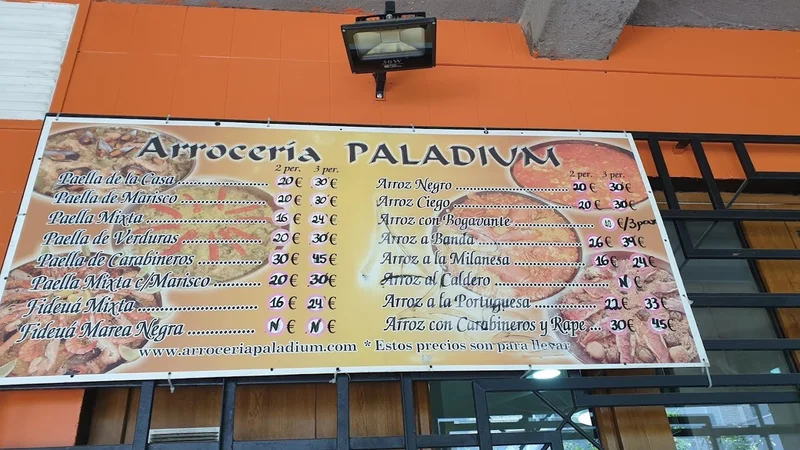 Arrocería PALADIUM
2 per. 3 per.
Paella de la Casa 20€ 30€
Paella de Marisco 20€ 30€
Paella Mixta 16€ 24€
Paella de Verduras 20€ 30€
Paella de Carabineros 30€ 45€
Paella Mixta c/Marisco 20€ 30€
Fideuá Mixta 16€ 24€
Fideuá Marea Negra N€ N€
2 per. 3 per.
Arroz Negro 20€ 30€
Arroz Ciego 20€ 30€
Arroz con Bogavante 40 €/3 per
Arroz a Banda 26€ 39€
Arroz a la Milanesa 16€ 24€
Arroz al Caldero N€
Arroz a la Portuguesa 22€ 33€
Arroz con Carabineros y Rape... 30€ 45€
www.arroceriapaladium.com * Estos precios son para llevar